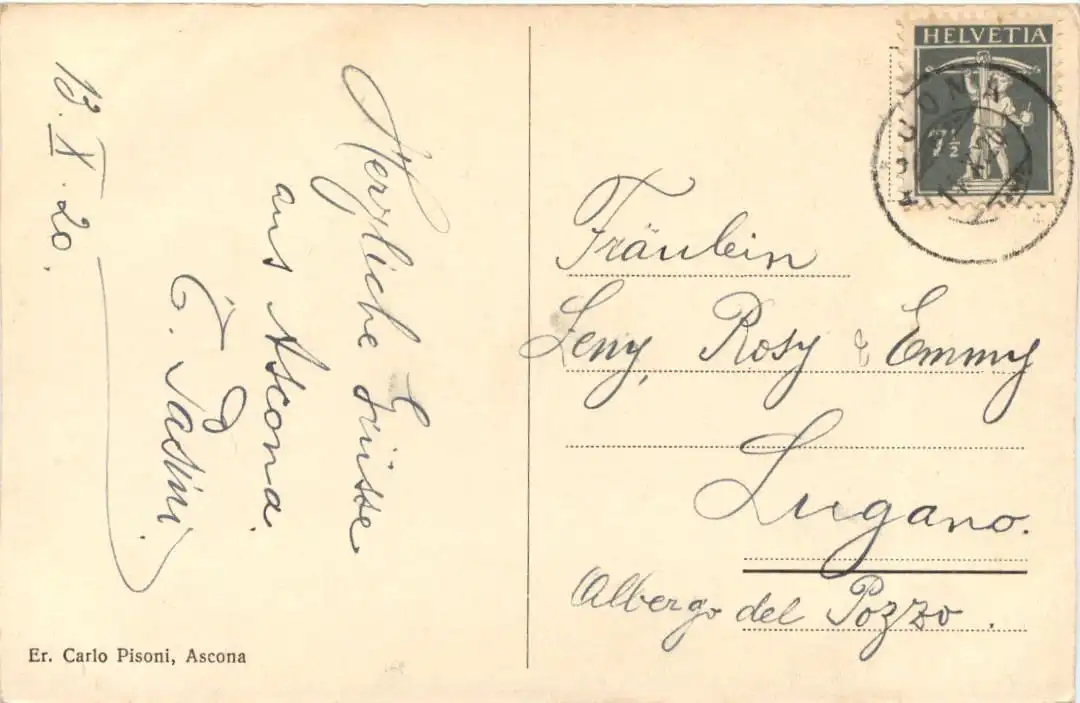 13. X. 20.
Herzliche Grüsse
aus Ascona.
Er. Carlo Pisoni, Ascona
HELVETIA
7½
Fräulein
Leny, Rosy & Emmy
Lugano.
Albergo del Pozzo.